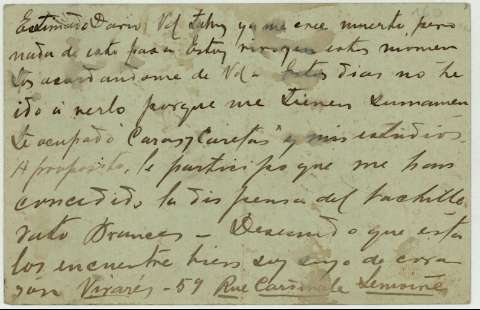 Estimado Dario, Vd. talvez ya me cree muerto, pero
nada de esto pasa. Estoy en estos momen
tos acordandome de Vd. - Estos dias no he
ido á verlo porque me tienen sumamen
te ocupado "Caras y Caretas" y mis estudios.
A proposito, le participo que me han
concedido la dispensa del bachille
rato Frances - Deseando que esta
los encuentre bien soy suyo de cora
zón Vivarés - 59 Rue Cardinale Lemoine